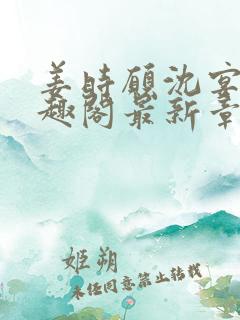 姜时愿沈宴
趣阁最新章
姬朔
未经同意禁止转载